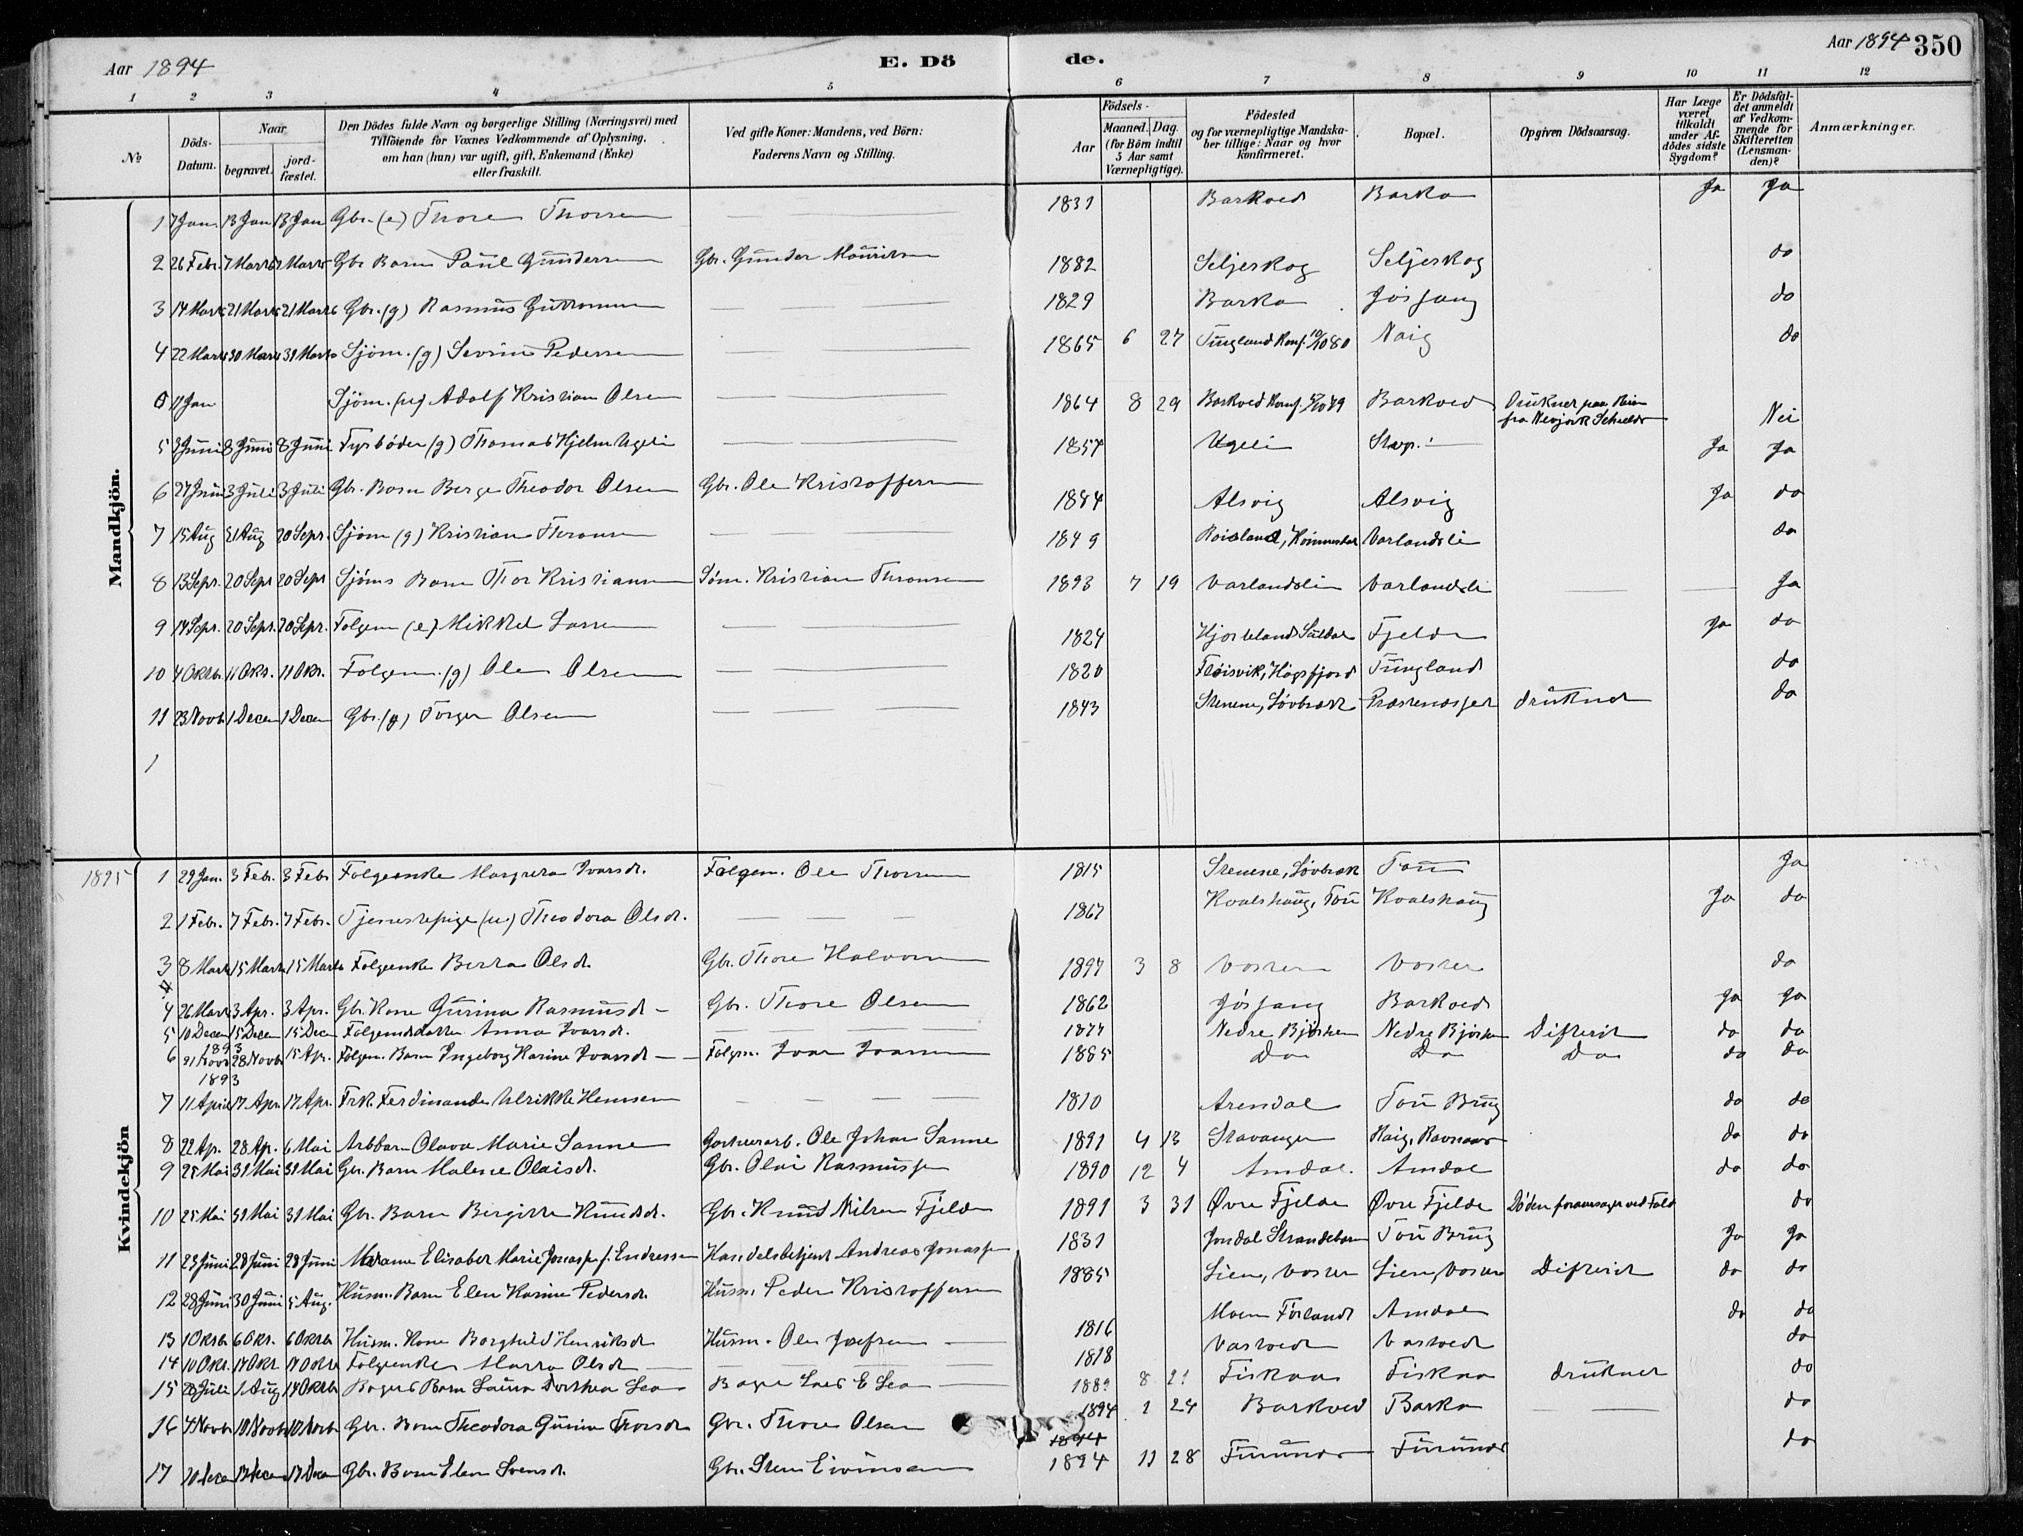 Aar 1894
E. Dö
de.
Aar 1894 350
1 2 3 4 5 6 7 8 9 10 11 12
No
Döds-Datum.
Naar
begravet.
jord-fæstet.
Den Dödes fulde Navn og borgerlige Stilling (Næringsvei) med
Tilföiende for Voxnes Vedkommende af Oplysning,
om han (hun) var ugift, gift, Enkemand (Enke)
eller fraskilt.
Ved gifte Koner: Mandens, ved Börn:
Faderens Navn og Stilling.
Födsels-
Aar
Maaned. Dag.
(for Börn indtil
5 Aar samt
Værnepligtige).
Födested
og for værnepligtige Mandska-
ber tillige: Naar og hvor
konfirmeret.
Bopæl.
Opgiven Dödsaarsag.
Har Læge
været
tilkaldt
under Af-
dödes sidste
Sygdom?
Er Dödsfal-
det anmeldt
af Vedkom-
mende for
Skifteretten
(Lensman-
den)?
Anmærkninger.
Mandkjön.
1 7 Jan. 13 Jan 13 Jan Gbr. (e) Thore Thorsen 1831 Barkved Barka Ja Ja
2 26 Febr. 7 Marts 7 Marts Gbr Barn Paul Gundersen Gbr. Gunder Mouritsen 1882 Seljeskog Seljeskog do
3 14 Marts 21 Marts 21 Marts Gbr. (g) Rasmus Guttormsen 1829 Barka Jösfang do
4 22 Marts 30 Marts 31 Marts Sjöm. (g) Severin Pedersen 1865 6 27 Tungland Konf. 10/10 80 Naig do
0 11 Jan Sjöm. (ug) Adolf Kristian Olsen 1864 8 29 Barkved Konf. 79 Barkved Druknet paa Reise
fra Newyork Nei
5 3 Juni 8 Juni 8 Juni Fyrböder (g) Thomas Hjelm Ugeli 1857 Ugeli Stavgr. Ja Ja
6 27 Juni 3 Juli 3 Juli Gbr. Barn Berge Theodor Olsen Gbr. Ole Kristoffersen 1884 Alsvig Alsvig Ja do
7 15 Aug 21 Aug 20 Sept. Sjöm (g) Kristian Thronsen 1849 Varlandsli do
8 13 Sept. 20 Sept 20 Sept Sjöms Barn Thor Kristiansen Söm. Kristian Thronsen 1893 7 19 Varlandsli Varlandsli Ja
9 14 Sept. 20 Sept. 20 Sept. Folgem (e) Mikkel Larsen 1824 Hjorteland Suldal Fjelde Ja do
10 4 Oktb. 11 Okt. 11 Okt. Folgem. (g) Ole Olsen 1820 Flöisvik, Högsfjord Tungland do
11 23 Novb 1 Decem 1 Decem Gbr. (g) Törger Olsen 1843 Stenene, Lövbrækk druknet do
1
Kvindekjön
1895 1 29 Jan. 3 Febr. 3 Febr Folgeenke Margreta Ivarsdt. Folgem. Ole Thorsen 1815 Stenene, Lövbræk Tou Ja
2 1 Febr. 7 Febr. 7 Febr. Tjenestepige (u) Theodora Olsdt. 1867 Kvalshaug, Tou Kvalshaug Ja do
3 8 Marts 15 Marts 15 Marts Folgeenke Berta Olsdt. Gbr. Thore Halvorsen 1894 3 8 Voster Voster do
4 26 Marts 3 Apr. 3 Apr. Gbr. Kone Gurina Rasmusdt Gbr. Thore Olsen 1862 Jösfang Barkved Ja Ja
5 10 Decem 15 Decem 15 Dec Folgemdatter Anna Ivarsdt. 1877 Nedre Björheim Nedre Björheim Difterit do do
1893
6 21 Novb 28 Novb 15 Apr. Folgem. Barn Ingeborg Karine Ivarsdt Folgem. Ivar Ivarsen 1885 Do Do Do do do
1893
7 11 April 17 Apr. 17 Apr. Frk. Ferdinande Ulrikke Hemsen 1810 Arendal Tou Brug do do
8 22 Apr. 28 Apr. 6 Mai Arbbarn Olava Marie Sanne Ole Johan Sanne 1891 4 13 Stavanger do do
9 25 Mai 31 Mai 31 Mai Gbr. Barn Malene Olaisdt. Gbr. Olai Rasmussen 1890 12 4 Amdal. Amdal do do
10 25 Mai 31 Mai 31 Mai Gbr. Barn Bergitte Knudsdt. Gbr. Knud Nilsen Fjelde 1891 3 31 Övre Fjelde Övre Fjelde Döden foraarsaget ved Fald do
11 23 Juni 28 Juni 28 Juni Madame Elisabet Marie Jonassen f. Endresen Handelsbetjent Andreas Jonassen 1831 Jondal Strandebarm Tou Brug Ja Ja
12 28 Juni 30 Juni 5 Aug. Husm. Barn Elen Karine Pedersdt. Husm. Peder Kristoffersen 1885 Lien, Voster Lien, Voster Difterit do do
13 1 Oktb 6 Okt. 6 Oktb Husm. Kone Borghild Henriksdt Husm. Ole Josefsen 1816 Moen Förlandt Amdal do do
14 10 Okt. 17 Okt 17 Oktb Folgeenke Marta Olsdt 1818 Vastvedt Vastvedt do
15 28 Juli 1 Aug 14 Oktb Bagers Barn Laura Dorthea Lea Bager Lars E Lea 1889 8 21 Fiskaa Fiskaa druknet do
16 4 Novb 10 Novb 10 Novb Gbr. Barn Theodora Gurine Thorsdt Gbr. Thore Olsen 1894 1 24 Barkved Barka do
1894
17 10 Decem 17 Decem 17 Decem Gbr. Barn Elen Svensdt. Gbr. Sven Eivindsen 1894 11 28 Furunes Furunes do